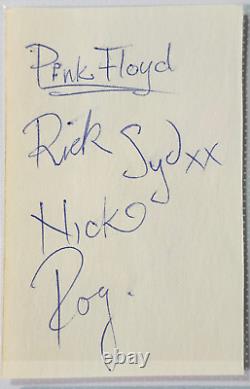 Pink Floyd
Rick Syd xx
Nick
Rog.